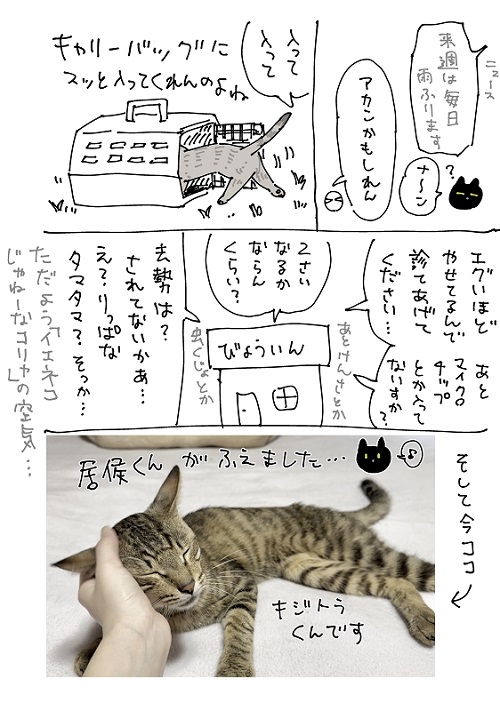 ニュース
来週は毎日
雨ふります
?
ナ〜ン
アカンかもしれん
入って
入って
キャリーバッグに
スッと入ってくれんのよね
エグいほど
やせてるんで
診てあげて
ください…
あと
マイクロ
チップ
とか入って
ないすか?
2さい
なるか
ならん
くらい?
びょういん
あとけんさとか
虫くじょとか
去勢は?
されてないかぁ…
え?りっぱな
タマタマ?そっか…
ただよう「イエネコ
じゃねーなコリャ」の空気…
そして今ココ
居候くんがふえました…
キジトラ
くんです